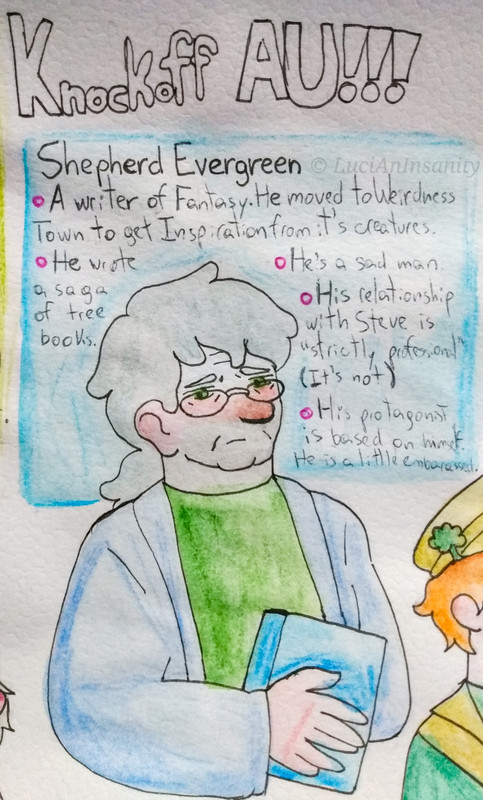 Knockoff AU!!!
Shepherd Evergreen
© LuciAnInsanity
A writer of Fantasy. He moved to Weirdness
Town to get Inspiration from it's creatures.
He wrote
a saga
of tree
books.
He's a sad man.
His relationship
with Steve is
"strictly profesional"
(It's not)
His protagonist
is based on himself.
He is a little embarassed.